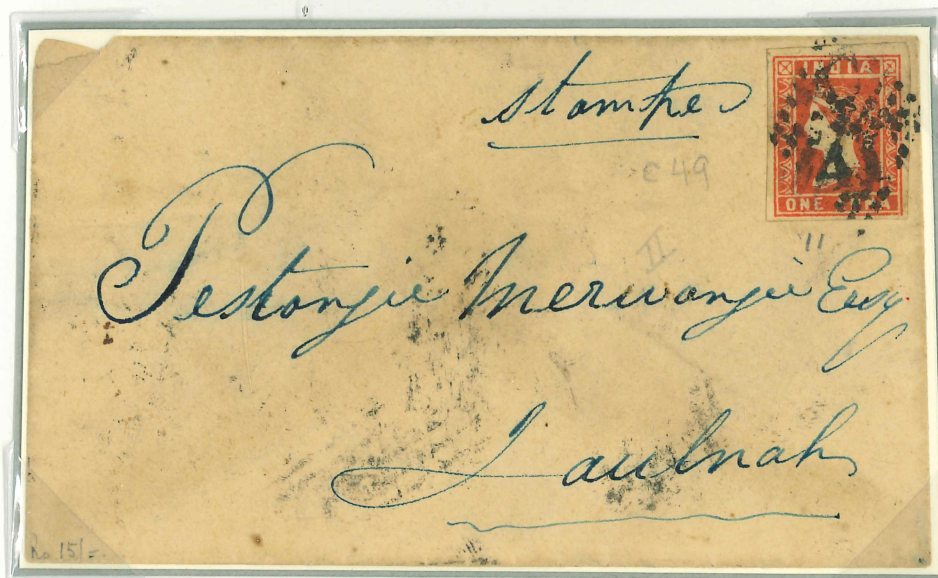 stamped
INDIA
4
ONE ANNA
c 49
11
II
Pestonjie Merwanjie Esq.
Jaulnah
Rs 15/=